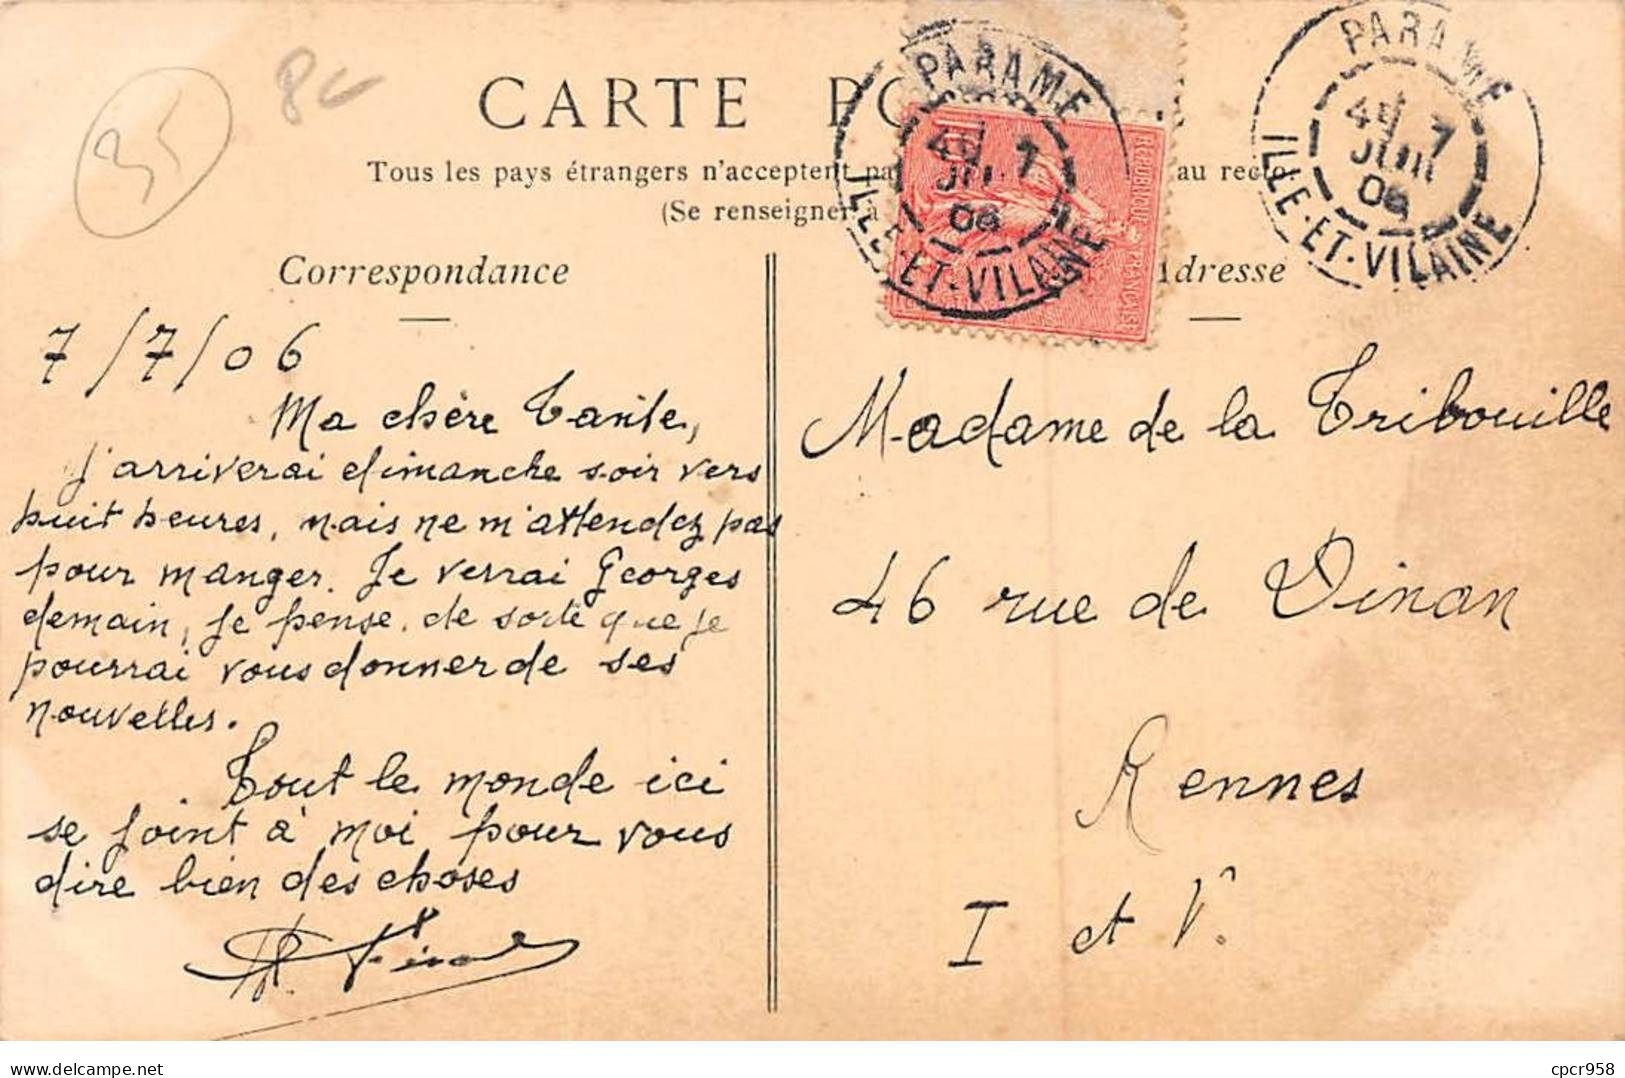 35
CARTE PO
Tous les pays étrangers n'acceptent pa au recto
(Se renseigner à
Correspondance
Adresse
PARAME
7
JUIL
06
ILLE-ET-VILAINE
REPUBLIQUE FRANÇAISE
PARAME
7
JUIL
06
ILLE-ET-VILAINE
7/7/06
Ma chère Tante,
J'arriverai dimanche soir vers
huit heures, mais ne m'attendez pas
pour manger. Je verrai Georges
demain, je pense, de sorte que je
pourrai vous donner de ses
nouvelles.
Tout le monde ici
se joint à moi pour vous
dire bien des choses
Madame de la Tribouille
46 rue de Dinan
Rennes
I et V.
cpcr958